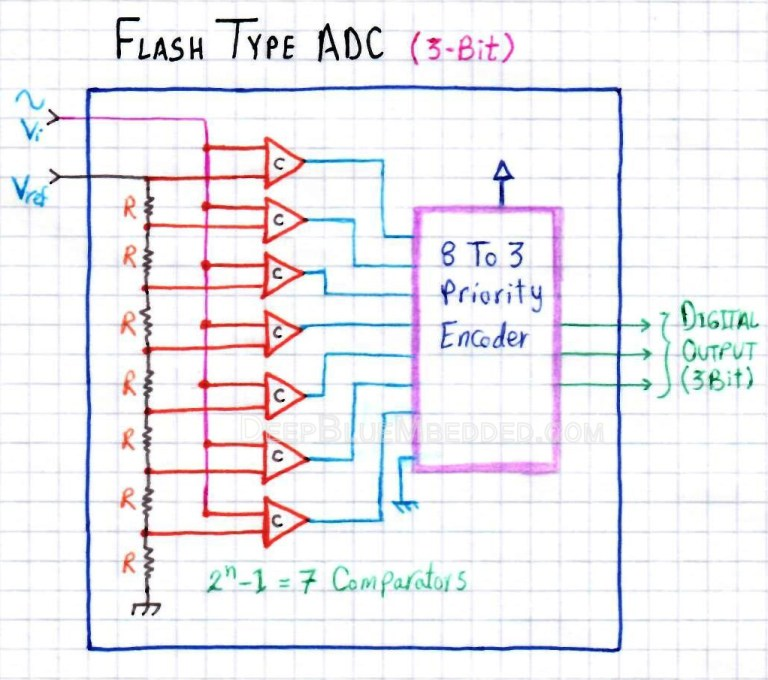 FLASH TYPE ADC (3-Bit)
~
Vi
Vref
R
R
R
R
R
R
R
C
C
C
C
C
C
C
8 To 3
Priority
Encoder
DIGITAL
OUTPUT
(3Bit)
DEEPBLUEMBEDDED.COM
2ⁿ-1 = 7 Comparators